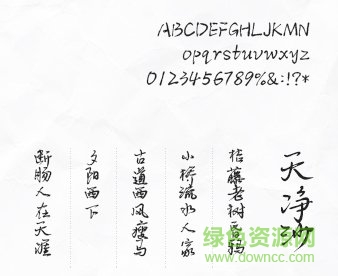 ABCDEFGHIJKMN
opqrstuvwxyz
0123456789%&:!?*
天净沙
枯藤老树昏鸦
小桥流水人家
古道西风瘦马
夕阳西下
断肠人在天涯
绿色资源网
www.downcc.com